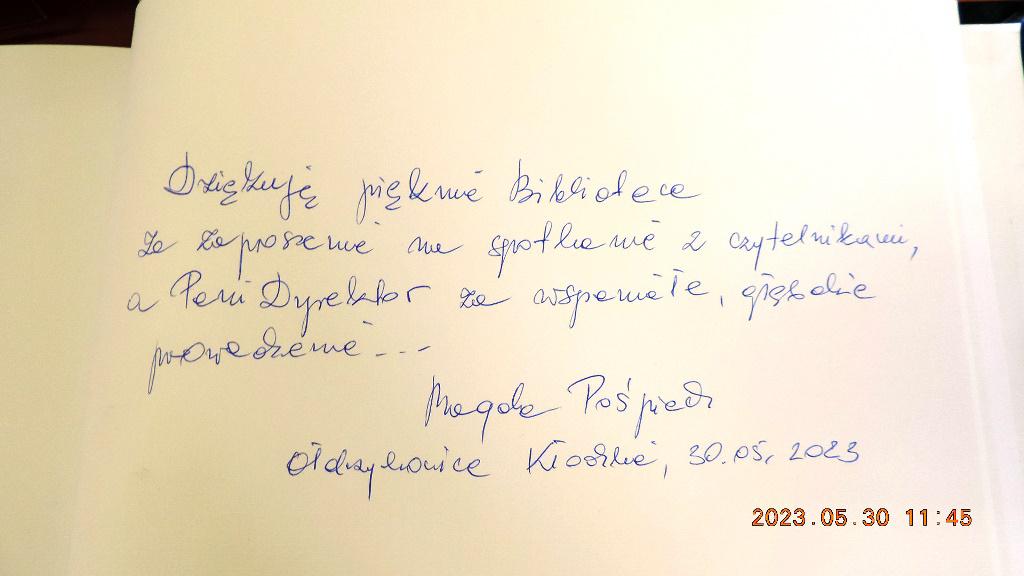 Dziękuję pięknie Bibliotece
za zaproszenie na spotkanie z czytelnikami,
a Pani Dyrektor za wspaniałe, głębokie
prowadzenie...
Magda Pośpiech
Ołdrzychowice Kłodzkie, 30.05.2023
2023.05.30 11:45